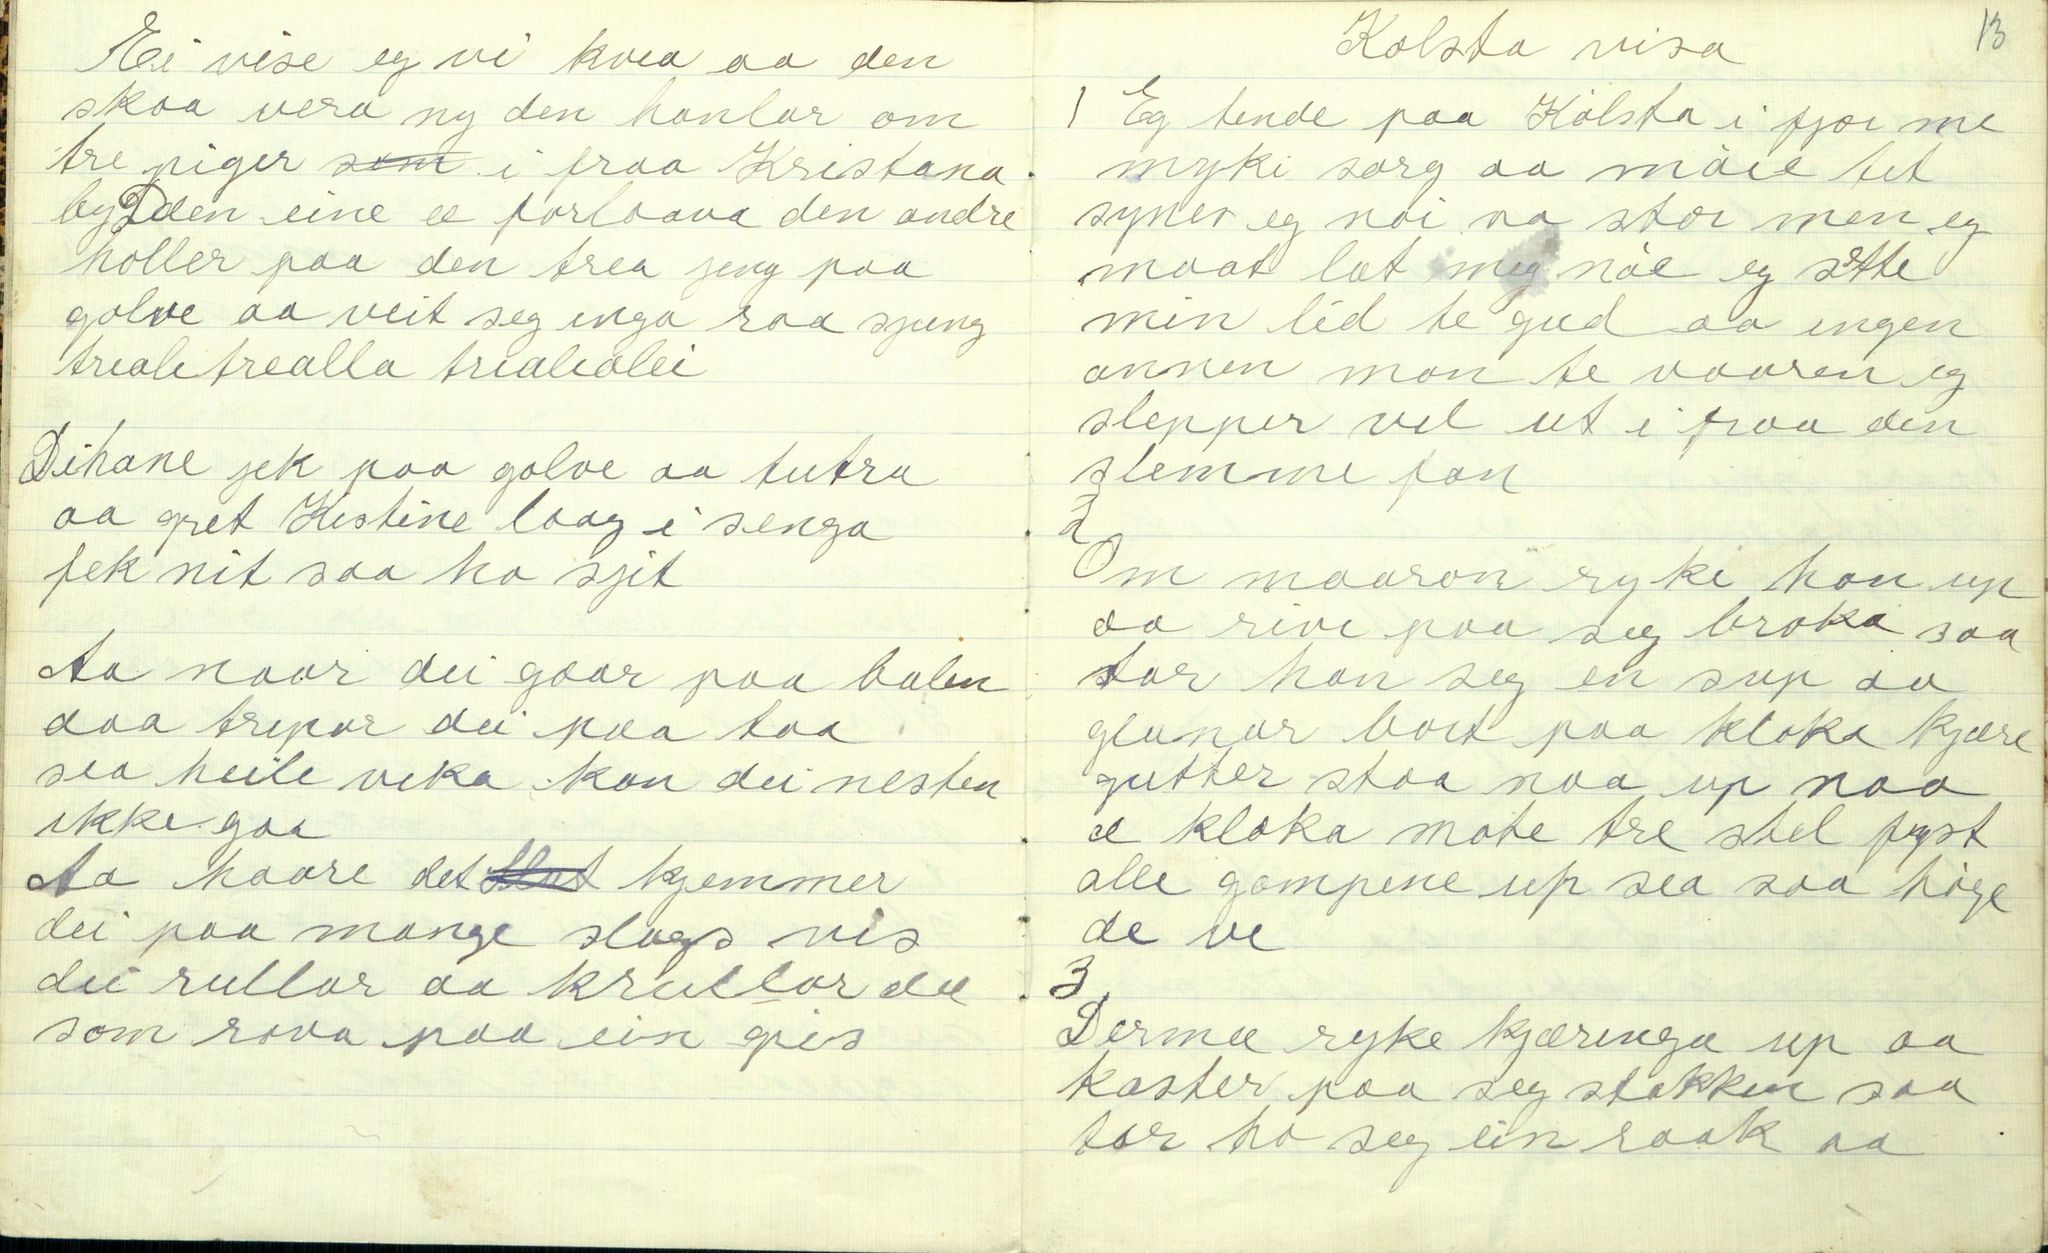 Ei vise eg vi kvea aa den
skaa vera ny den hanlar om
tre piger som i fraa Kristana
by Dden eine æ forlaava den andre
holler paa den trea jeng paa
golve aa veit seg inga raa sjung
trealetrealla trealealei
Dihane jek paa golve aa tutra
aa gret Kistine laag i senga
fek nit saa ho sjit
Aa naar dei gaar paa balen
daa tripar dei paa taa
sea heile veka kan dei nesten
ikke gaa
Aa haare det kjemmer
dei paa mange slags vis
dei rullar aa krullar dæ
som rova paa ein gris
Kolsta visa
13
1 Eg tende paa Kolsta i fjor me
myki sorg aa möie tet
synes eg noi va stor men eg
maat læt meg nöie eg sette
min lid te gud aa ingen
annen man te vaaren eg
slepper vel ut i fraa den
slemme fan
2
Om maaron ryke han up
aa rive paa seg broka saa
tar han seg en sup aa
glanar bort paa kloka kjære
gutter staa naa up naa
æ kloka mote tre stel fyst
alle gampene up sea saa höge
de ve
3
Dermæ ryke kjæringa up aa
kaster paa seg stakken saa
tar ho seg ein raak aa